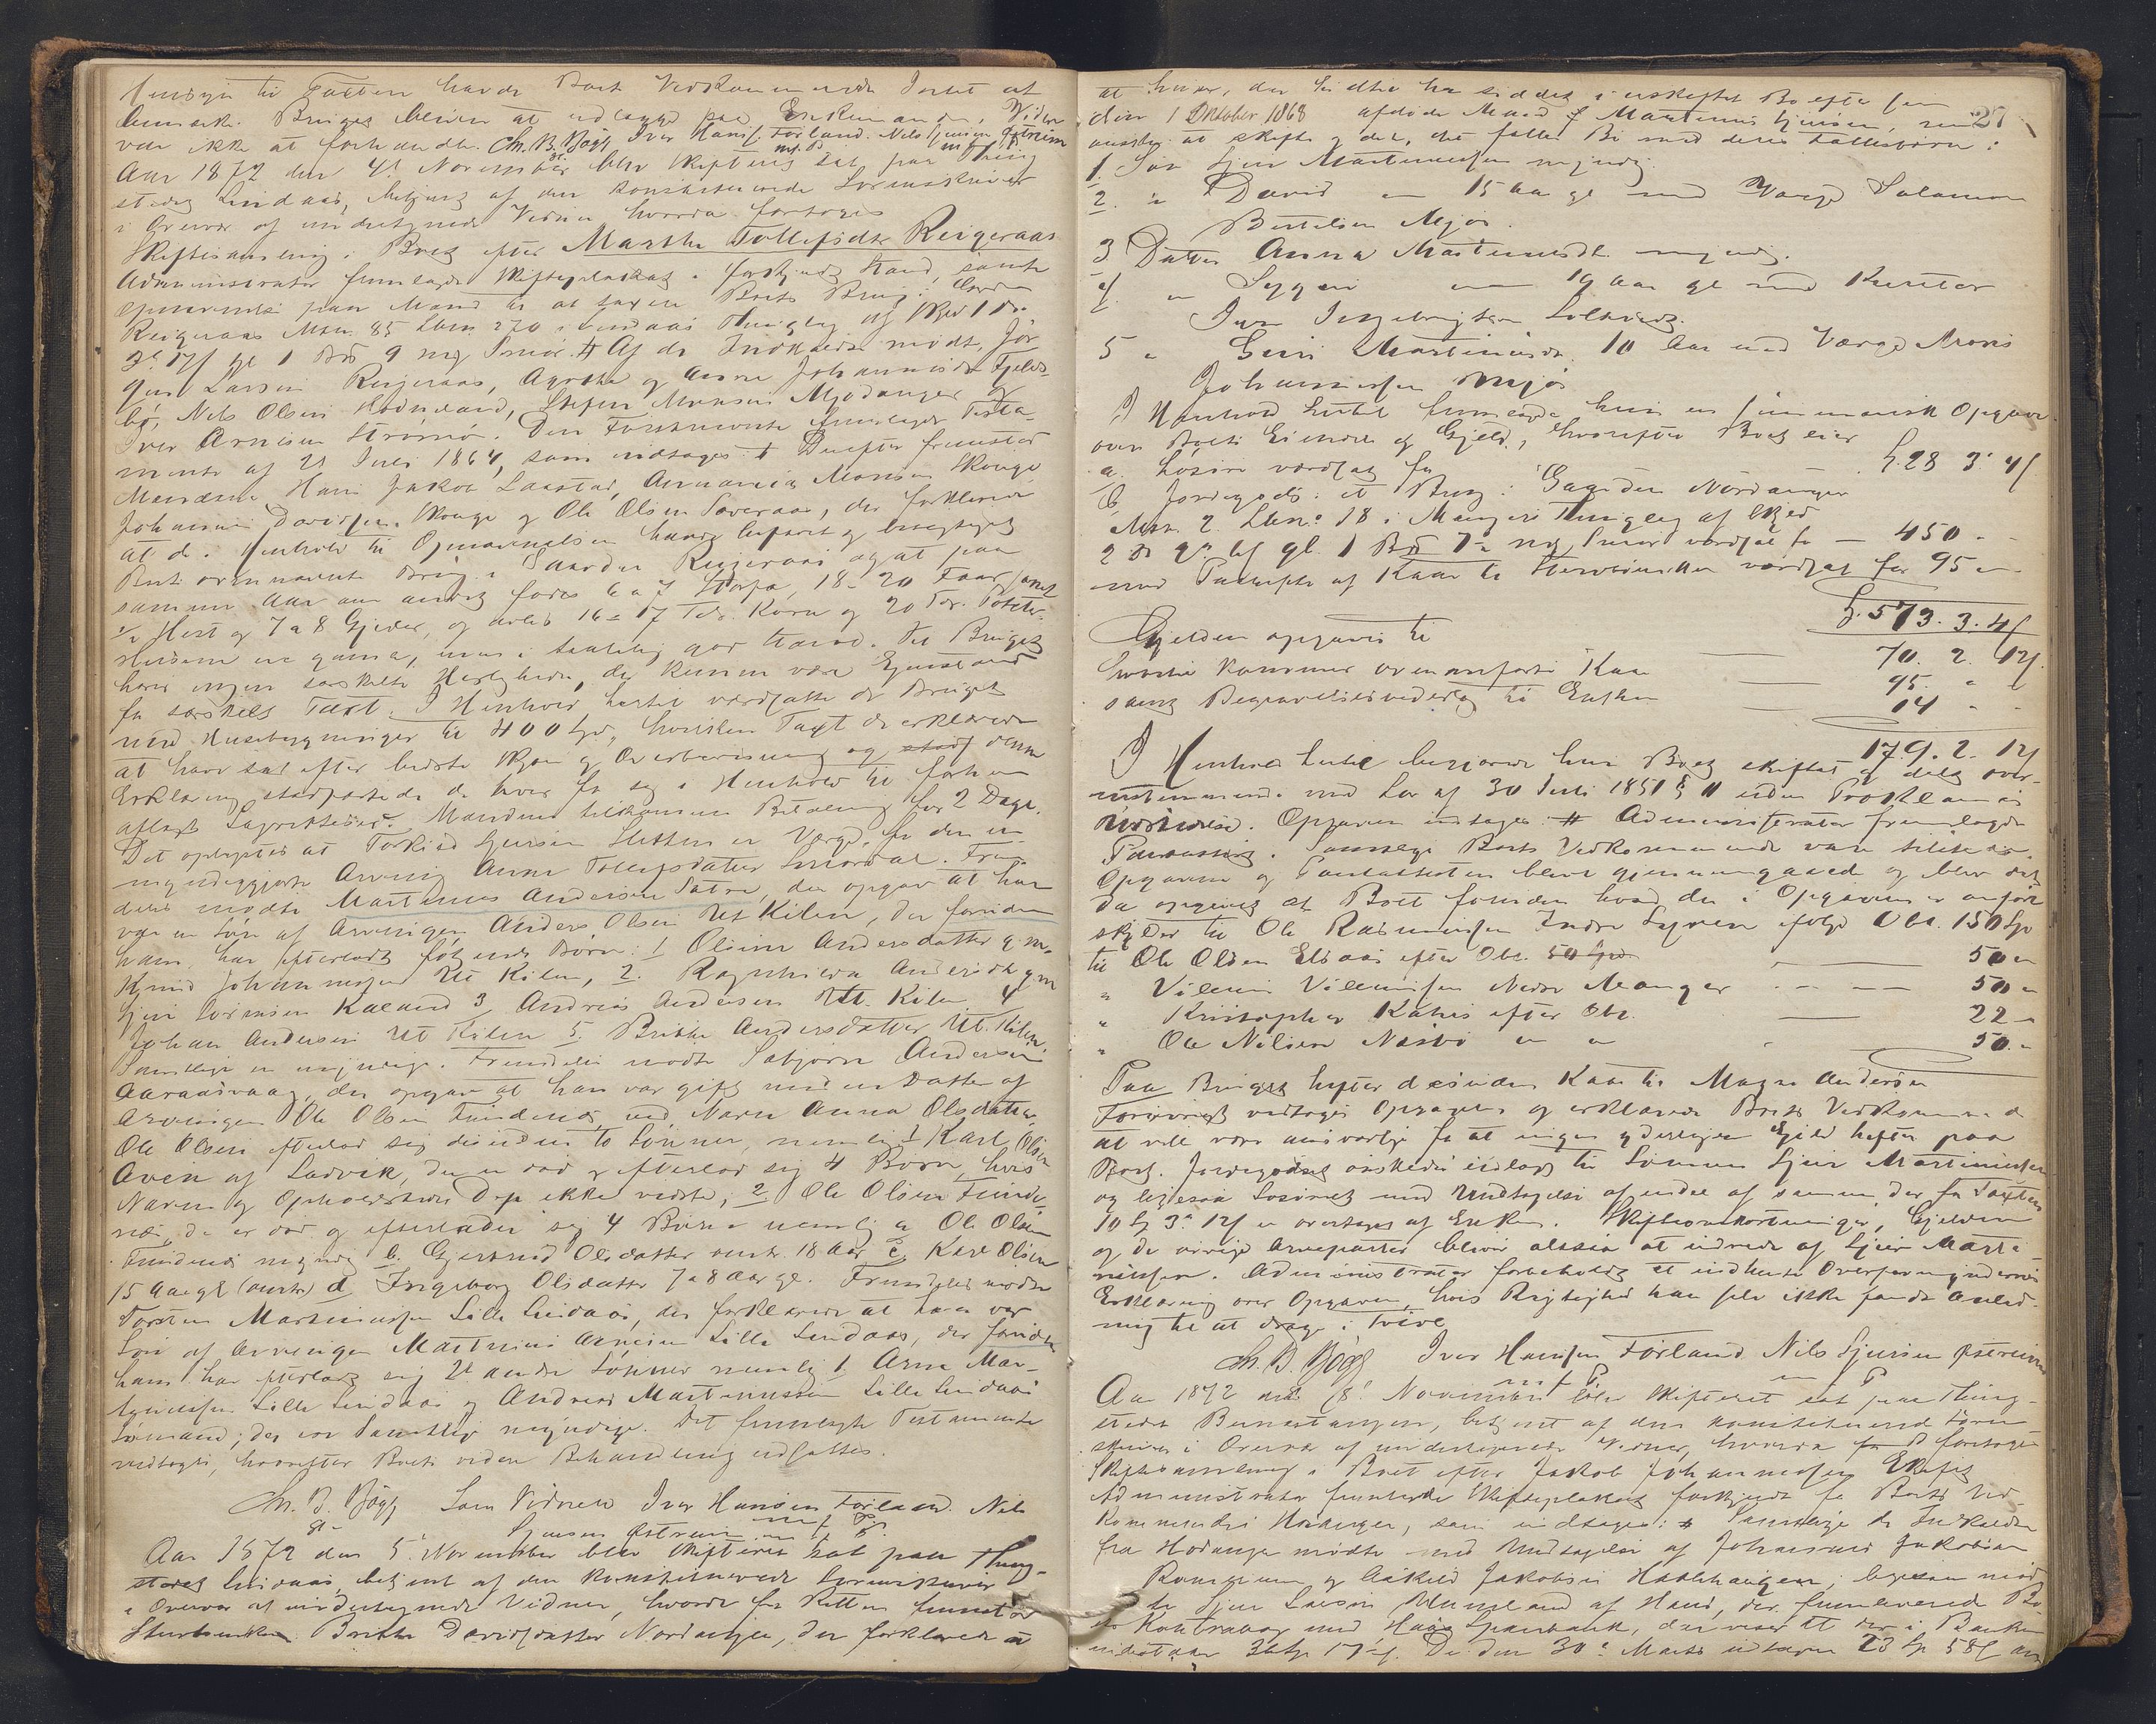 Hensyn til Taxten havde Boets Vedkommende Intet at
bemærke. Bruget bliver at udlægge paa Enkemanden. Videre
var ikke at forhandle. Ch. B. Bøgh Iver Hans. Førland. Nils Sjursen
m f P
Aar 1872 den 4de November blev Skifteret sat paa Thing
stedet Lindaas, betjent af den konstituerede Sorenskriver
i Overvær af undertegnede Vidner hvorda foretoges
Skiftesamling i Boet efter Marthe Tollefsdtr Reigeraas
Administrator fremlagde Skifteplakat i forkyndt Stand, samt
opnævnelse paa Mænd til at taxere Boets Brug i Gaarden
Reigeraas Mtn. 85 Lbn 270 i Lindaas Thinglag af Skyld 1 Dr.
3 17 s gl 1 Bpd 9 mrk Smør. # Af de Indkaldte mødte Jør
gen Larsen Reigeraas, Agathe og Anne Johannesdtr Fjelds-
bø, Nils Olsen Hodneland, Steffen Monsen Mjødanger og
Iver Arnesen Strømø. Den Førstnævnte fremlagde Testa-
mente af 21 Juli 1864, som indtages # Derefter fremstod
Mændene Hans Jakob Laastad, Annanias Monsen Skouge
Johannes Davidsen Skouge og Ole Olsen Saveraas, der forklarede
at de i Henhold til Opnævnelsen havde befaret og besigtiget
Boets ovennævnte Brug i Gaarden Reigeraas og at paa
samme Aar om andet fødes 6 a 7 Storfæ, 18 a 20 Faar samt
1/2 Hest og 7 a 8 Gjeder, og avles 16 a 17 Tdr. Korn og 20 Tdr. Poteter.
Husene ere gamle, men i taalelig god Stand. Til Bruget
hører ingen særskilte Herligheder, der kunne være Gjenstand
for særskilt Taxt. I Henhold hertil værdsatte de Bruget
med Husebygninger til 400 Spd, hvilken Taxt de erklærede
at have sat efter bedste Skjøn og Overbevisning og denne
Erklæring stadfæstede de hver for sig i Henhold til forhen
aflagt Lagrettesed. Mændene tilkommer Betaling for 2 Dage.
Det oplystes at Torkild Sjursen Sletten er Værge for den u-
myndiggjorte Arving Anne Tollefsdatter Smørdal. Frem-
deles mødte Martinus Andersen Sætre, der opgav at han
var en Søn af Arvingen Anders Olsen Ut Kilen, der foruden
ham har efterladt følgende Børn: 1 Oline Andersdatter g. m.
Knud Johannessen Ut Kilen, 2. Ragnhilda Andersdtr g m
Sjur Sørensen Kaland 3 Andreas Andersen Ut. Kilen 4
Johan Andersen Ut Kilen 5. Brithe Andersdatter Ut. Kilen
Samtlige ere myndige. Fremdeles mødte Sabjørn Andersen
Aaraasvaag, der opgav at han var gift med en Datter af
Arvingen Ole Olsen Fundenes ved Navn Anna Olsdatter
Ole Olsen efterlod sig desuden to Sønner, nemlig 1 Karl Olsen
Aven af Ladvik, der er død og efterlod sig 4 Børn, hvis
Navne og Opholdssted Dep ikke vidste, 2 Ole Olsen Funde-
næs, der er død og efterlader sig 4 Børn nemlig a Ole Olsen
Fundenes myndig b. Gjertrud Olsdatter omtr. 18 Aar c Karl Olsen
15 Aar gl (omtr) d Ingeborg Olsdatter 7 a 8 Aar gl. Fremdeles mødte
Torsten Martinussen Lille Lindaas, der forklarede at han var
Søn af Arvingen Martinus Arnesen Lille Lindaas, der foruden
ham har efterladt sig 2 andre Sønner nemlig 1 Arne Mar-
tinussen Lille Lindaas og Andreas Martinussen Lille Lindaas
Sømand; der ere samtlige myndige. Det fremlagte Testamente
vedtages, hvorefter Boets videre Behandling udsattes.
Ch. B. Bøgh Som Vidner Iver Hansen Førland. Nils
Sjursen m f P.
Aar 1872 den 5te November blev Skifteret sat paa Thing-
stedet Lindaas, betjent af den konstituerede Sorenskriver
i Overvær af undertegnede Vidner, hvorda for Retten fremstod
Sterbenken Brithe Davidsdatter Nordanger, der forklarede
27
at hun, der hidtil har siddet i uskiftet Bo efter sin
den 1 Oktober 1868 afdøde Mand Martinus Sjursen, nu
ønsker at skifte og dele det fælles Bo med deres Fællesbørn:
1. Søn Sjur Martinussen myndig.
2. " David " 15 Aar gl med Værge Salamon
Bertelsen Mjøs.
3 Datter Anna Martinusdtr. myndig.
4 " Sygni " 19 Aar gl med Kurator
Iver Ingebrigtsen Solheim
5 " Guri Martinusdtr. 10 Aar med Værge Mons
Johannessen Mjøs
I Henhold hertil fremlagde hun en summarisk Opgave
over Boets Eiendele og Gjeld, hvorefter Boet eier
a. Løsøre værdsat for S. 28 3 4 s
b Jordegods: et Brug i Gaarden Nordanger
Mtn. 2. Lbn. 18 i Mangers Thinglag af Skyld
2 gl. 1 Bpd 7 1/2 mrk Smør værdsat for — 450 -
med Paaheftet af Kaar til Sterbenken værdsat for 95 "
S. 573. 3. 4 s
Gjelden opgives til 70. 2. 12 s.
hvortil kommer ovenanførte Kaar 95. " "
samt Begravelsesvederlag til Enken 14 - -
179. 2. 12 s
I Henhold hertil begjærede hun Boet skiftet og delt over-
ensstemmende med Lov af 30 Juli 1851 § 11 uden Proklama
Udstedelse. Opgaven indtages # Administrator fremlagde
Pantattest. Samtlige Boets Vedkommende vare tilstede.
Opgaven og Pantattesten blev gjennemgaaede og blev det
da opgivet at Boet foruden hvad der i Opgaven er anført
skylder til Ole Rasmussen Indre Sævrø ifølge Obl. 150 Spd
til Ole Olsen Elsaas efter Obl. 50 "
" Villum Villumsen Nedre Manger 50 "
" Kristopher Kahrs efter Obl. 22 "
" Ole Nilsen Næsbø " " 50. "
Paa Bruget hefter desuden Kaar til Magne Andersen
Forøvrigt vedtoges Opgaven og erklærede Boets Vedkommende
at ville være ansvarlige for at ingen yderligere Gjeld hefter paa
Boet. Jordegodset ønskedes udlagt til Sønnen Sjur Martinussen
og ligesaa Løsøret med Undtagelse af endel af samme, der for Taxten
10 S 3 12 s er overtaget af Enken. Skifteomkostninger, Gjelden
og de øvrige Arveparter bliver altsaa at udrede af Sjur Marti-
nussen. Administrator forbeholdt at indhente Overformynderiets
Erklæring over Opgaven, hvis Rigtighed han selv ikke fandt Anled-
ning til at drage i Tvivl
Ch. B. Bøgh Iver Hansen Førland. Nils Sjursen
m f P.
Aar 1872 den 8de November blev Skifteret sat paa Thing-
stedet Bernestangen, betjent af den konstituerede Soren
skriver i Overvær af undertegnede Vidner, hvorda foretoges
Skiftesamling i Boet efter Jakob Johannessen
Administrator fremlagde Skifteplakat forkyndt for Boets Ved-
kommende i Hosanger, som indtages: # Samtlige de Indkaldte
fra Hosanger mødte med Undtagelse af Johannes Jakobsen
og Askild Jakobsen ligesaa mød-
te Sjur Larsen af Haus, der fremleverede
Kontrabog med Haus Sparebank, der viser at der i Banken
indestaar Den 30te Marts udtaget 23 Sp 58 s